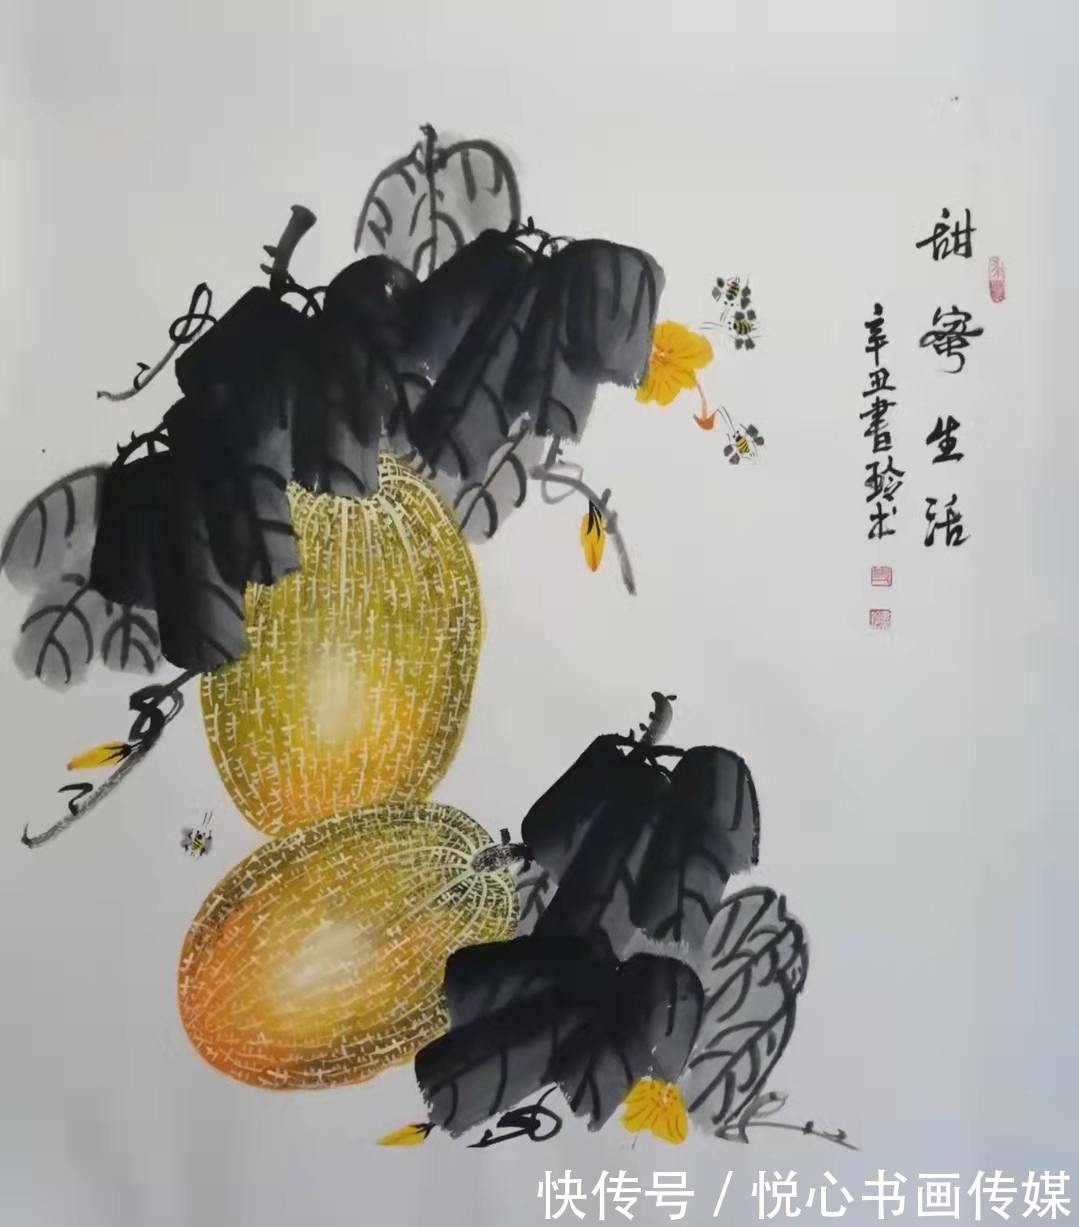 甜蜜生活
辛丑書玲
快传号/悦心书画传媒